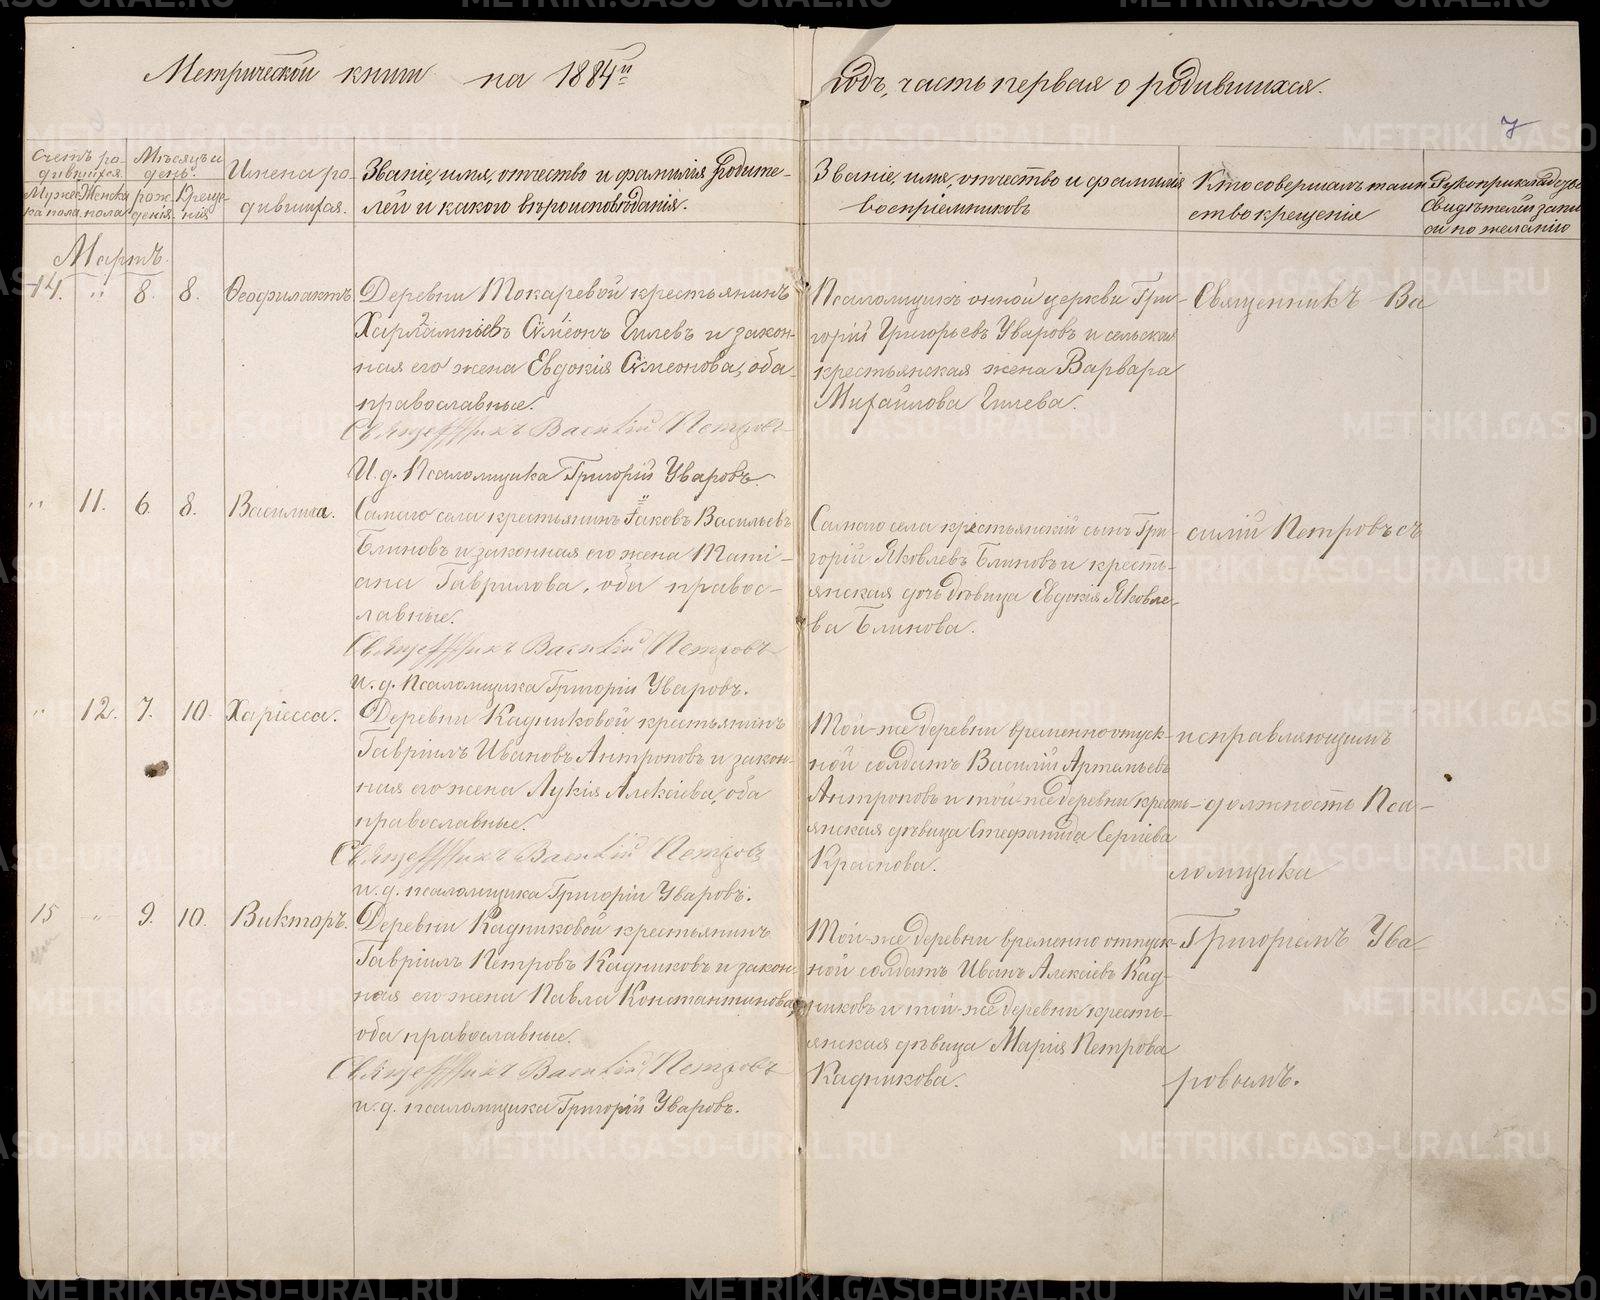 Метрической книги на 1884й годъ, часть первая о родившихся.
7
Счетъ ро-
дившихся.
Мужес-
ка пола.
Женска
пола.
Мѣсяцъ и
день.
рож-
денія.
Креще-
нія
Имена ро-
дившихся.
Званіе, имя, отчество и фамилія родите-
лей и какого вѣроисповѣданія.
Званіе, имя, отчество и фамилія
воспріемниковъ
Кто совершалъ таин-
ство крещенія
Рукоприкладство
свидѣтелей запи-
си по желанію
Мартъ.
14. " 8. 8. Ѳеофилактъ.
Деревни Токаревой крестьянинъ
Харлампіевъ Сѵмеонъ Гилевъ и закон-
ная его жена Евдокія Сѵмеонова, оба
православные.
Священникъ Василій Петровъ
И. д. Псаломщика Григорій Уваровъ.
Псаломщикъ оной церкви Гри-
горій Григорьевъ Уваровъ и сельская
крестьянская жена Варвара
Михайлова Гилева.
Священникъ Ва-
" 11. 6. 8. Василиса.
Самаго села крестьянинъ Іаковъ Васильевъ
Блиновъ и законная его жена Тати-
ана Гаврилова, оба правос-
лавные.
Священникъ Василій Петровъ
и. д. Псаломщика Григорій Уваровъ.
Самаго села крестьянскій сынъ Гри-
горій Яковлевъ Блиновъ и кресть-
янская дочь дѣвица Евдокія Яковле-
ва Блинова.
силій Петровъ съ
" 12. 7. 10. Харіесса.
Деревни Кадниковой крестьянинъ
Гавріилъ Ивановъ Антроповъ и закон-
ная его жена Лукія Алексіева, оба
православные.
Священникъ Василій Петровъ
и. д. псаломщика Григорій Уваровъ.
Той-же деревни временно отпуск-
ной солдатъ Василій Артемьевъ
Антроповъ и той-же деревни кресть-
янская дѣвица Стефанида Сергіева
Краснова.
исправляющимъ
должность Пса-
ломщика
15 " 9. 10. Викторъ.
Деревни Кадниковой крестьянинъ
Гавріилъ Петровъ Кадниковъ и закон-
ная его жена Павла Константинова,
оба православные.
Священникъ Василій Петровъ
и. д. псаломщика Григорій Уваровъ.
Той-же деревни временно отпуск-
ной солдатъ Иванъ Алексіевъ Кад-
никовъ и той-же деревни кресть-
янская дѣвица Марія Петрова
Кадникова.
Григоріемъ Ува-
ровымъ.
METRIKI.GASO-URAL.RU